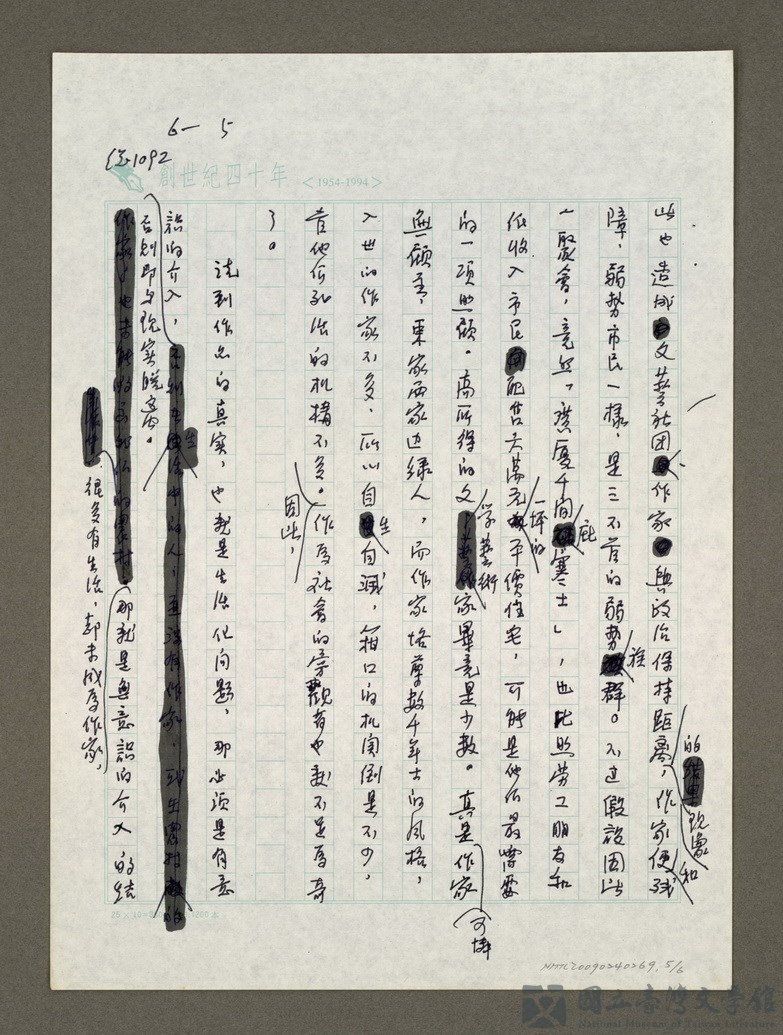 6-5
創世紀四十年 <1954-1994>
此也造成文藝社團作家與政治保持距離,作家便
的現象和
障,弱勢市民一樣,是三不管的弱勢族群。不過假設因此
一聚會,竟然「廣廈千間庇寒士」,也比照勞工朋友和
低收入市民配售天母一坪的平價住宅,可能是他們最需要
的一項照顧。高所得的文學藝術家畢竟是少數。真是作家可憐
無顧主,東家西家逛綠人,而作家恪尊數千年士的風格,
入世的作家不多,所以自生自滅,箝口的机関倒是不少,
肯他們死活的机構不多。因此,作為社會的旁觀者也就不足為奇
了。
談到作品的真實,也就是生活化問題,那必須是有意
識的介入,
否則即與現實脫离。
那就是無意識的介入的結
很多有生活,却未成為作家,
NMTL20090240269, 5/6
國立臺灣文學館
National Museum of Taiwan Literature